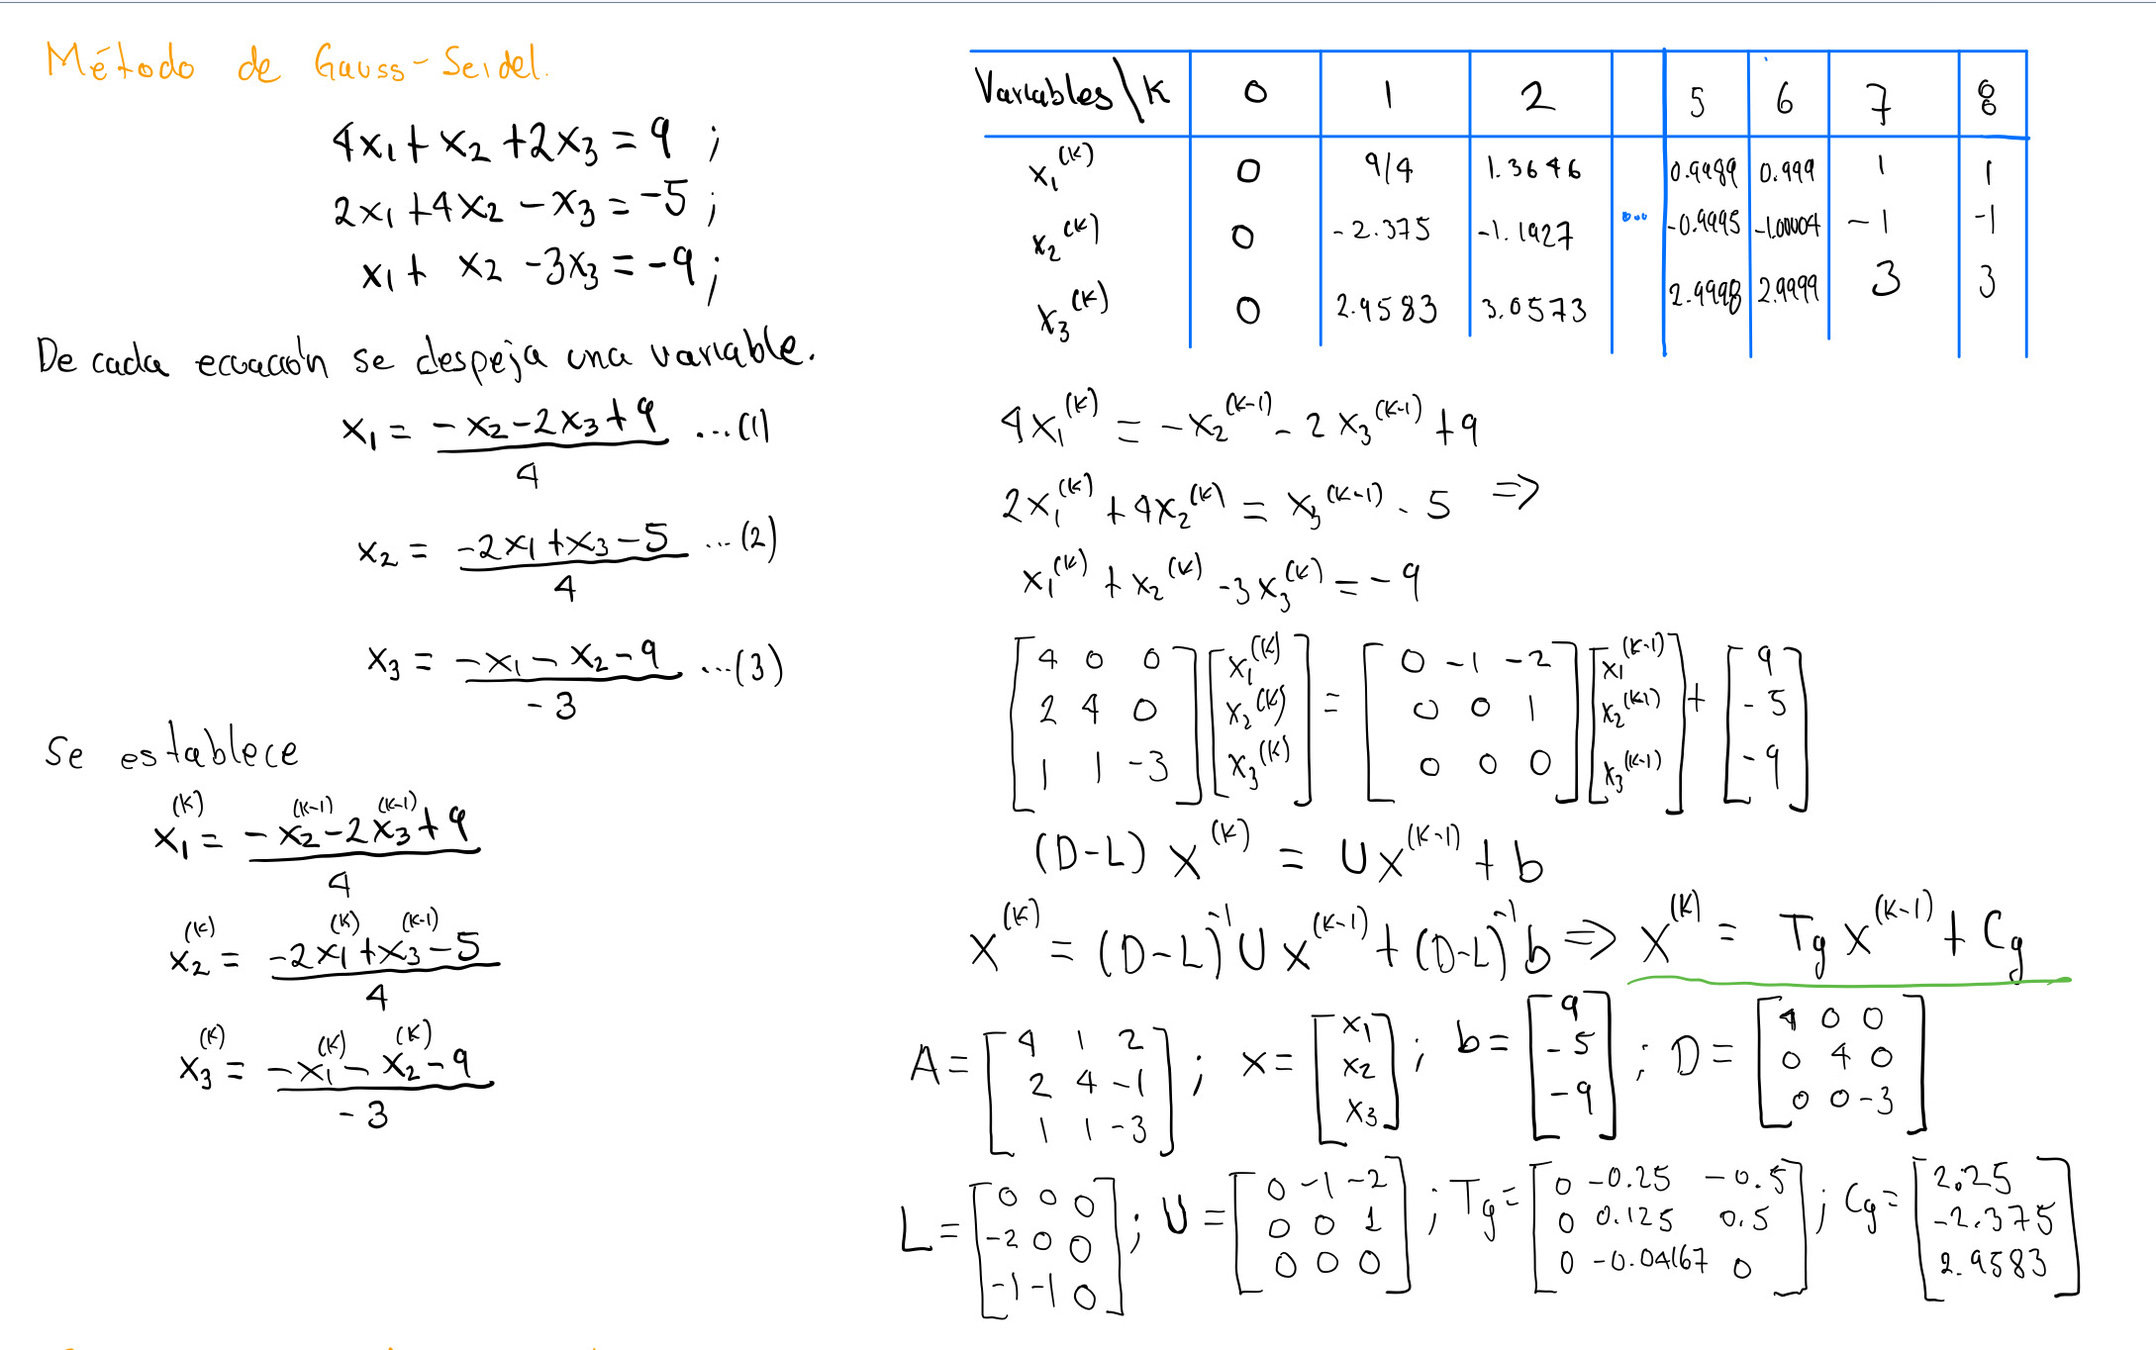 Método de Gauss-Seidel.
4x₁ + x₂ + 2x₃ = 9 ;
2x₁ + 4x₂ - x₃ = -5 ;
x₁ + x₂ - 3x₃ = -9 ;
De cada ecuación se despeja una variable.
x₁ = (-x₂ - 2x₃ + 9) / 4 ...(1)
x₂ = (-2x₁ + x₃ - 5) / 4 ...(2)
x₃ = (-x₁ - x₂ - 9) / -3 ...(3)
Se establece
x₁^(K) = (-x₂^(K-1) - 2x₃^(K-1) + 9) / 4
x₂^(K) = (-2x₁^(K) + x₃^(K-1) - 5) / 4
x₃^(K) = (-x₁^(K) - x₂^(K) - 9) / -3
Variables\K 0 1 2 5 6 7 8
x₁^(K) 0 9/4 1.3646 0.9989 0.999 1 1
x₂^(K) 0 -2.375 -1.1927 ... -0.9995 -1.00004 -1 -1
x₃^(K) 0 2.9583 3.0573 2.9998 2.9999 3 3
4x₁^(K) = -x₂^(K-1) - 2x₃^(K-1) + 9
2x₁^(K) + 4x₂^(K) = x₃^(K-1) - 5 ⇒
x₁^(K) + x₂^(K) - 3x₃^(K) = -9
[4 0 0; 2 4 0; 1 1 -3] [x₁^(K); x₂^(K); x₃^(K)] = [0 -1 -2; 0 0 1; 0 0 0] [x₁^(K-1); x₂^(K-1); x₃^(K-1)] + [9; -5; -9]
(D-L) x^(K) = Ux^(K-1) + b
x^(K) = (D-L)^-1 U x^(K-1) + (D-L)^-1 b ⇒ x^(K) = Tg x^(K-1) + Cg
A = [4 1 2; 2 4 -1; 1 1 -3] ; x = [x₁; x₂; x₃] ; b = [9; -5; -9] ; D = [4 0 0; 0 4 0; 0 0 -3]
L = [0 0 0; -2 0 0; -1 -1 0] ; U = [0 -1 -2; 0 0 1; 0 0 0] ; Tg = [0 -0.25 -0.5; 0 0.125 0.5; 0 -0.04167 0] ; Cg = [2.25; -2.375; 2.9583]